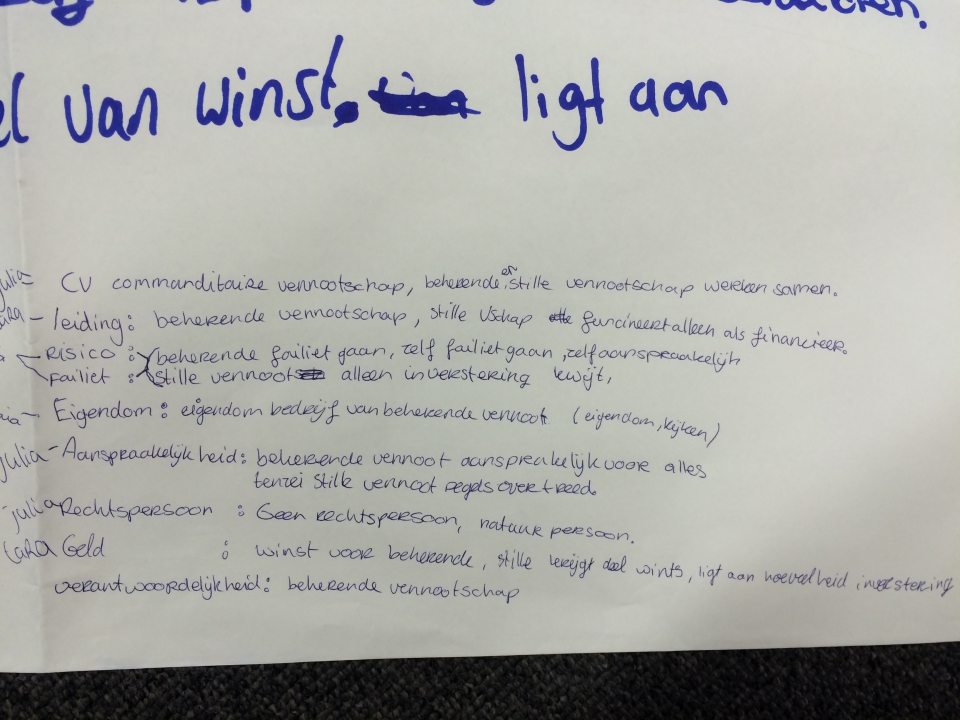 el van winst. ligt aan
Julia CV commanditaire vennootschap, beherende en stille vennootschap werken samen.
- leiding: beherende vennootschap, stille Vschap funcineert alleen als financieer.
- Risico : beherende failiet gaan, zelf failiet gaan, zelf aansprakelijk
failiet : stille vennoot alleen inverstering kwijt,
- Eigendom: eigendom bedrijf van beherende vennoot (eigendom, kijken)
Julia - Aansprakelijkheid: beherende vennoot aansprakelijk voor alles
tenzei stille vennoot regels overtreed.
Julia Rechtspersoon : Geen rechtspersoon, natuur persoon.
Cara Geld : winst voor beherende, stille krijgt deel wints, ligt aan hoeveelheid inverstering
verantwoordelijkheid: beherende vennootschap